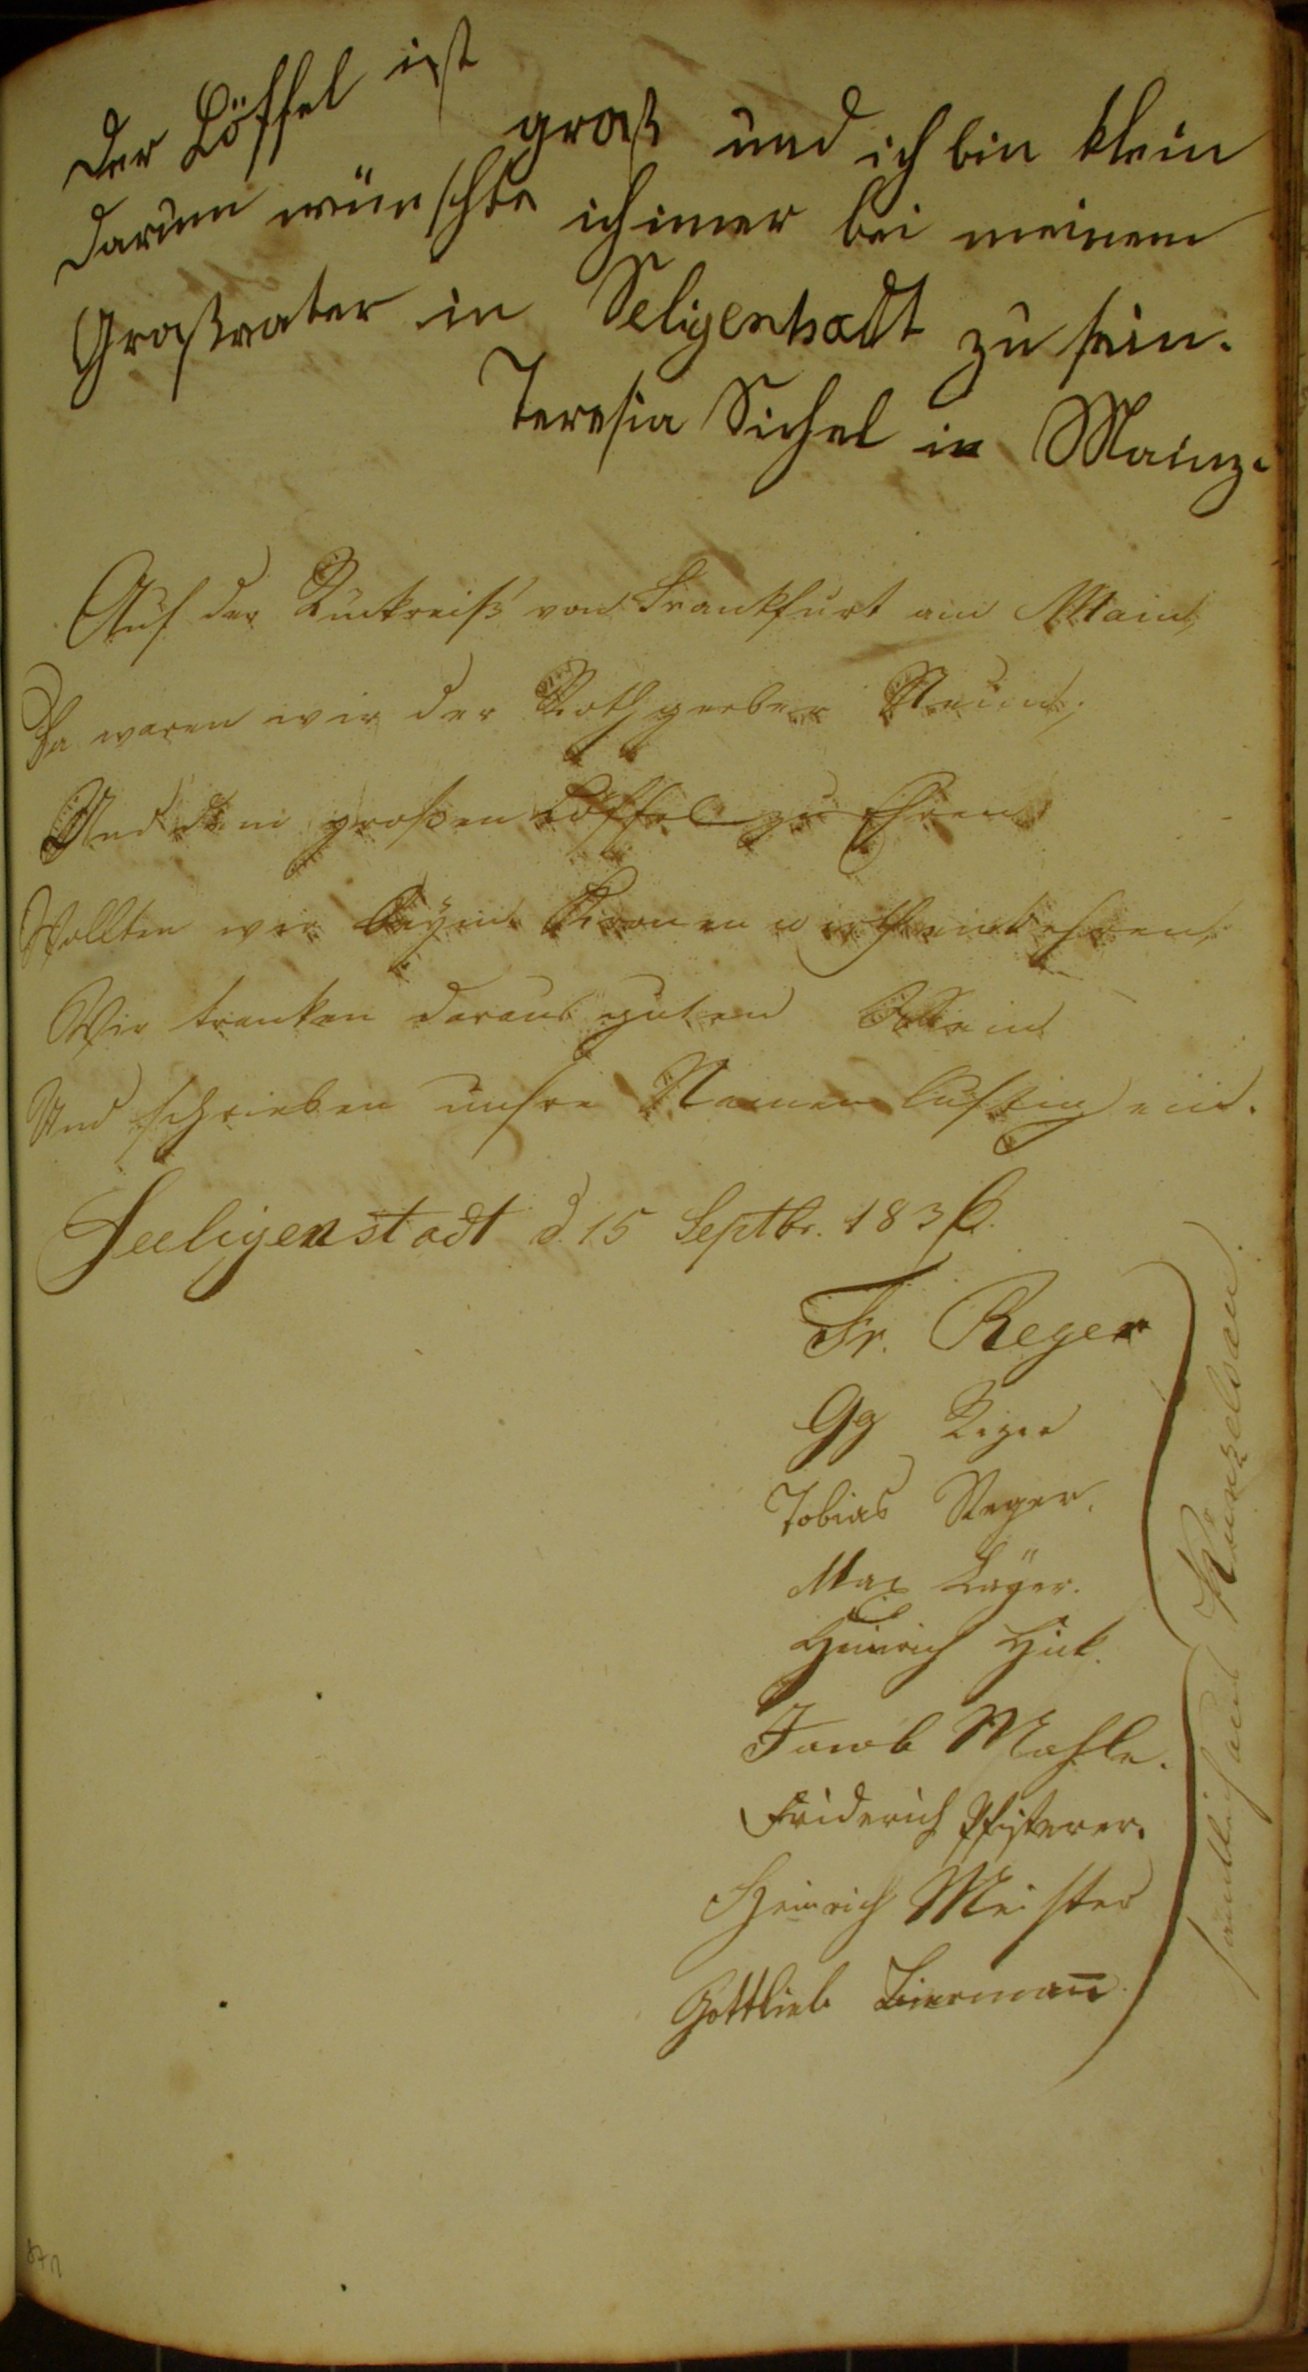 Der Löffel ist groß und ich bin klein
darum wünschte ich imer bei meinem
Großvater in Seligenstadt zu sein.
Teresia Sichel in Mainz.
Auf der Rückreiß von Frankfurt am Main,
Da waren wir der Rothgerber Neun;
Und dem großen Löffel zu Ehren
Wollten wir beym Kronenwirth einkehren,
Wir tranken daraus guten Wein
Und schrieben unsre Namen lustig ein.
Seeligenstadt d. 15 Septbr. 1836.
Fr. Reger
Gg Reger
Tobias Reger.
Max
Heinrich Hück.
Jacob Mahle.
Friderich Pfisterer.
Heinrich Meister
Gottlieb Bierman̄
sämtlich aus Künzelsau.